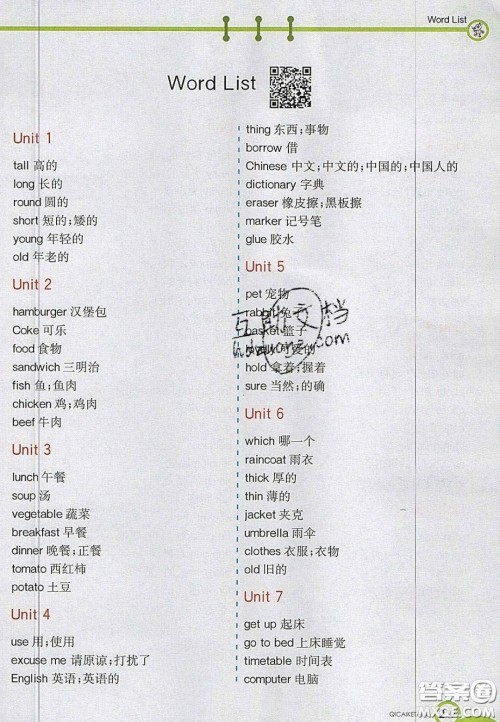 Word List
Word List
Unit 1
tall 高的
long 长的
round 圆的
short 短的;矮的
young 年轻的
old 年老的
Unit 2
hamburger 汉堡包
Coke 可乐
food 食物
sandwich 三明治
fish 鱼;鱼肉
chicken 鸡;鸡肉
beef 牛肉
Unit 3
lunch 午餐
soup 汤
vegetable 蔬菜
breakfast 早餐
dinner 晚餐;正餐
tomato 西红柿
potato 土豆
Unit 4
use 用;使用
excuse me 请原谅;打扰了
English 英语;英语的
thing 东西;事物
borrow 借
Chinese 中文;中文的;中国的;中国人的
dictionary 字典
eraser 橡皮擦;黑板擦
marker 记号笔
glue 胶水
Unit 5
pet 宠物
rabbit 兔子
basket 篮子
可爱的
hold 拿着;握着
sure 当然;的确
Unit 6
which 哪一个
raincoat 雨衣
thick 厚的
thin 薄的
jacket 夹克
umbrella 雨伞
clothes 衣服;衣物
old 旧的
Unit 7
get up 起床
go to bed 上床睡觉
timetable 时间表
computer 电脑
互助文档
.com
QICAIKET
答案圈
MXQE.COM